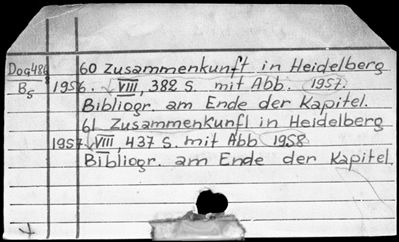 Doq486 60 Zusammenkunft in Heidelberg
B5 1956. VIII, 382 S. mit Abb. 1957.
Bibliogr. am Ende der Kapitel.
61 Zusammenkunft in Heidelberg
1957. VIII, 437 S. mit Abb 1958
Bibliogr. am Ende der Kapitel.